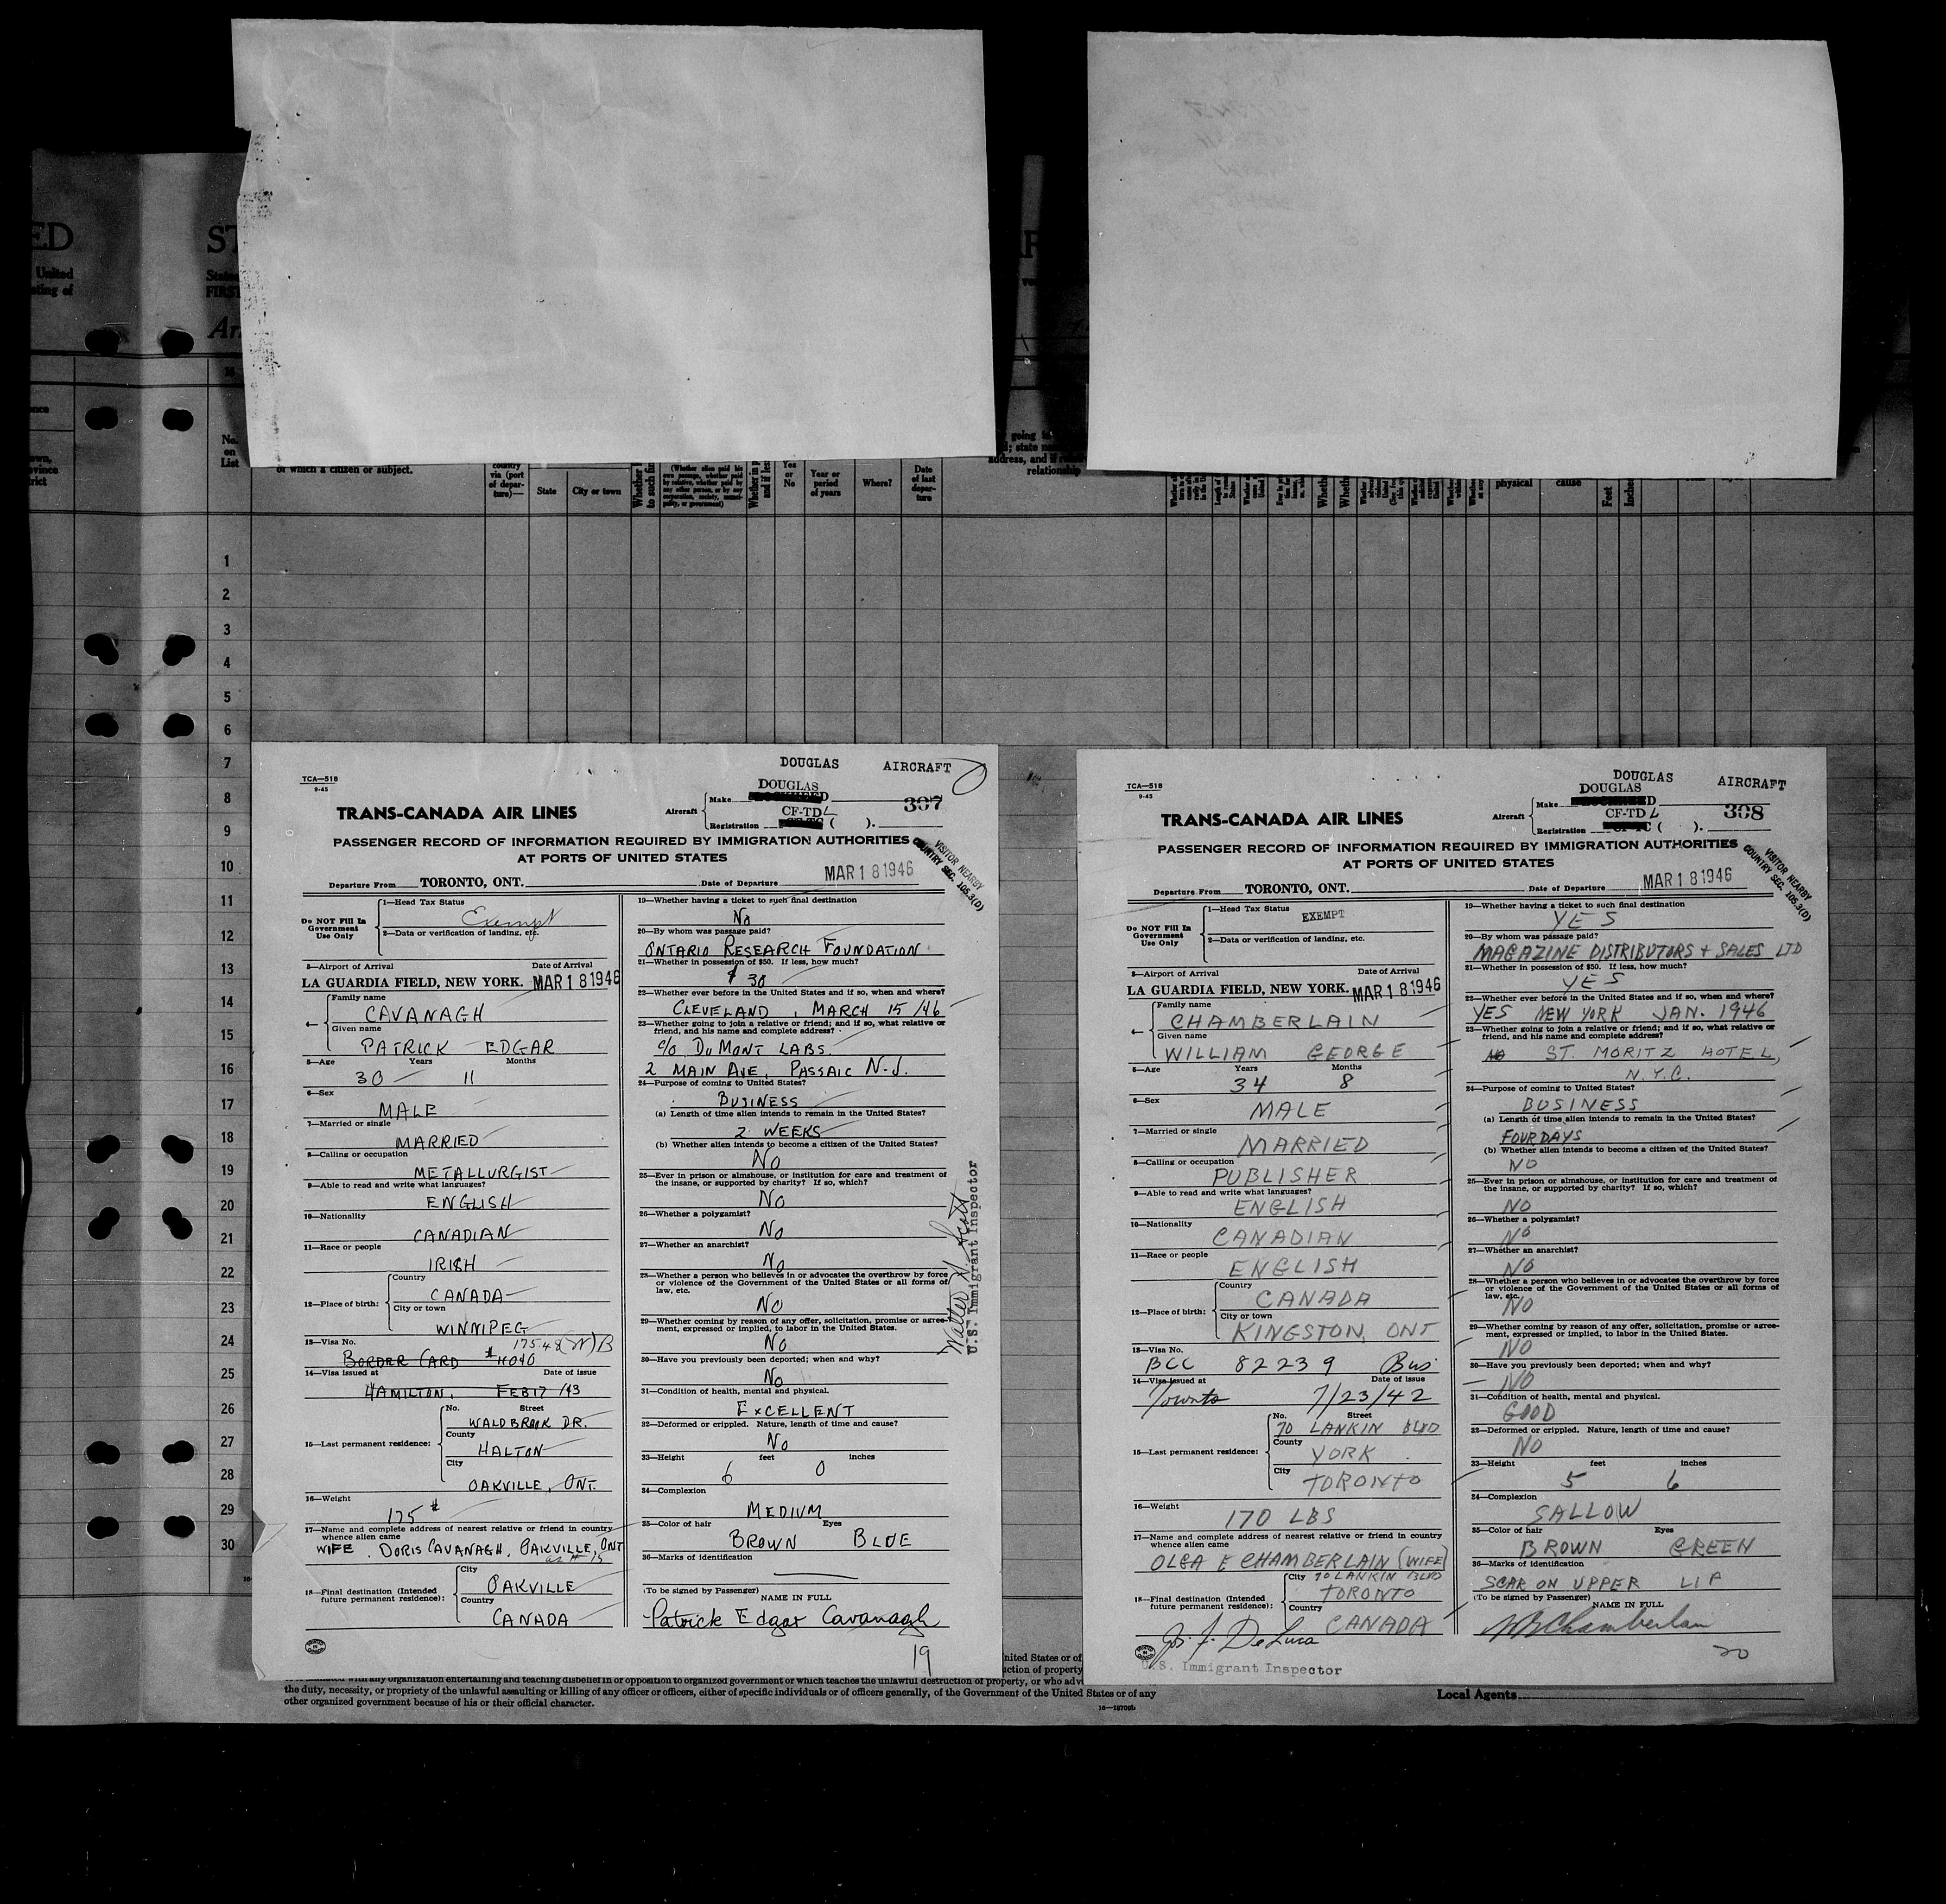 ED
United
No.
on
List
of which a citizen or subject.
country
via (port
of depar-
ture)—
State
City or town
(Whether alien paid his
own passage, whether paid
by relative, whether paid by
any other person, or by any
corporation, society, munici-
pality, or government)
Yes
or
No
Year or
period
of years
Where?
Date
of last
depar-
ture
address, and if
relationship
physical
cause
Feet
Inches
1
2
3
4
5
6
7
8
9
10
11
12
13
14
15
16
17
18
19
20
21
22
23
24
25
26
27
28
29
30
TCA—518
9-45
DOUGLAS AIRCRAFT
TRANS-CANADA AIR LINES
Aircraft
Make DOUGLAS
Registration CF-TDL ( ). 307
PASSENGER RECORD OF INFORMATION REQUIRED BY IMMIGRATION AUTHORITIES
AT PORTS OF UNITED STATES
VISITOR NEARBY
COUNTRY SEC. 105.3(D)
Departure From TORONTO, ONT. Date of Departure MAR 18 1946
Do NOT Fill In
Government
Use Only
1—Head Tax Status
Exempt
2—Data or verification of landing, etc.
3—Airport of Arrival Date of Arrival
LA GUARDIA FIELD, NEW YORK. MAR 18 1946
4—
Family name
CAVANAGH
Given name
PATRICK EDGAR
5—Age Years Months
30 11
6—Sex
MALE
7—Married or single
MARRIED
8—Calling or occupation
METALLURGIST
9—Able to read and write what languages?
ENGLISH
10—Nationality
CANADIAN
11—Race or people
IRISH
12—Place of birth:
Country
CANADA
City or town
WINNIPEG
13—Visa No.
BORDER CARD
14—Visa issued at Date of issue
HAMILTON, FEB 17 /43
15—Last permanent residence:
No. Street
WALDBROOK DR.
County
HALTON
City
OAKVILLE, ONT.
16—Weight
175 #
17—Name and complete address of nearest relative or friend in country
whence alien came
WIFE. DORIS CAVANAGH, OAKVILLE, ONT
as # 15
18—Final destination (Intended
future permanent residence):
City
OAKVILLE
Country
CANADA
19—Whether having a ticket to such final destination
No
20—By whom was passage paid?
ONTARIO RESEARCH FOUNDATION
21—Whether in possession of $50. If less, how much?
$ 30
22—Whether ever before in the United States and if so, when and where?
CLEVELAND, MARCH 15 /46
23—Whether going to join a relative or friend; and if so, what relative or
friend, and his name and complete address?
c/o DuMONT LABS.
2 MAIN AVE, PASSAIC N.J.
24—Purpose of coming to United States?
BUSINESS
(a) Length of time alien intends to remain in the United States?
2 WEEKS
(b) Whether alien intends to become a citizen of the United States?
No
25—Ever in prison or almshouse, or institution for care and treatment of
the insane, or supported by charity? If so, which?
No
26—Whether a polygamist?
No
27—Whether an anarchist?
No
28—Whether a person who believes in or advocates the overthrow by force
or violence of the Government of the United States or all forms of
law, etc.
No
29—Whether coming by reason of any offer, solicitation, promise or agree-
ment, expressed or implied, to labor in the United States.
No
30—Have you previously been deported; when and why?
No
31—Condition of health, mental and physical.
EXCELLENT
32—Deformed or crippled. Nature, length of time and cause?
No
33—Height feet inches
6 0
34—Complexion
MEDIUM
35—Color of hair Eyes
BROWN BLUE
36—Marks of identification
(To be signed by Passenger)
NAME IN FULL
Patrick Edgar Cavanagh
19
Walter N. Scott
U.S. Immigrant Inspector
TCA—518
9-45
DOUGLAS AIRCRAFT
TRANS-CANADA AIR LINES
Aircraft
Make DOUGLAS
Registration CF-TDL ( ). 308
PASSENGER RECORD OF INFORMATION REQUIRED BY IMMIGRATION AUTHORITIES
AT PORTS OF UNITED STATES
VISITOR NEARBY
COUNTRY SEC. 105.3(D)
Departure From TORONTO, ONT. Date of Departure MAR 18 1946
Do NOT Fill In
Government
Use Only
1—Head Tax Status
EXEMPT
2—Data or verification of landing, etc.
3—Airport of Arrival Date of Arrival
LA GUARDIA FIELD, NEW YORK. MAR 18 1946
4—
Family name
CHAMBERLAIN
Given name
WILLIAM GEORGE
5—Age Years Months
34 8
6—Sex
MALE
7—Married or single
MARRIED
8—Calling or occupation
PUBLISHER
9—Able to read and write what languages?
ENGLISH
10—Nationality
CANADIAN
11—Race or people
ENGLISH
12—Place of birth:
Country
CANADA
City or town
KINGSTON, ONT
13—Visa No.
BCC 82239 Bus
14—Visa issued at Date of issue
Toronto 7/23/42
15—Last permanent residence:
No. Street
70 LANKIN BLVD
County
YORK
City
TORONTO
16—Weight
170 LBS
17—Name and complete address of nearest relative or friend in country
whence alien came
OLGA E CHAMBERLAIN (WIFE)
18—Final destination (Intended
future permanent residence):
City 70 LANKIN BLVD
TORONTO
Country
CANADA
Jos. J. DeLuca
U.S. Immigrant Inspector
19—Whether having a ticket to such final destination
YES
20—By whom was passage paid?
MAGAZINE DISTRIBUTORS + SALES LTD
21—Whether in possession of $50. If less, how much?
YES
22—Whether ever before in the United States and if so, when and where?
YES NEW YORK JAN. 1946
23—Whether going to join a relative or friend; and if so, what relative or
friend, and his name and complete address?
NO ST. MORITZ HOTEL,
N.Y.C.
24—Purpose of coming to United States?
BUSINESS
(a) Length of time alien intends to remain in the United States?
FOUR DAYS
(b) Whether alien intends to become a citizen of the United States?
NO
25—Ever in prison or almshouse, or institution for care and treatment of
the insane, or supported by charity? If so, which?
NO
26—Whether a polygamist?
NO
27—Whether an anarchist?
NO
28—Whether a person who believes in or advocates the overthrow by force
or violence of the Government of the United States or all forms of
law, etc.
NO
29—Whether coming by reason of any offer, solicitation, promise or agree-
ment, expressed or implied, to labor in the United States.
NO
30—Have you previously been deported; when and why?
NO
31—Condition of health, mental and physical.
GOOD
32—Deformed or crippled. Nature, length of time and cause?
NO
33—Height feet inches
5 6
34—Complexion
SALLOW
35—Color of hair Eyes
BROWN GREEN
36—Marks of identification
SCAR ON UPPER LIP
(To be signed by Passenger)
NAME IN FULL
WGChamberlain
20
any organization entertaining and teaching disbelief in or opposition to organized government or which teaches the unlawful destruction of property, or who
the duty, necessity, or propriety of the unlawful assaulting or killing of any officer or officers, either of specific individuals or of officers generally, of the Government of the United States or of any
other organized government because of his or their official character.
Local Agents